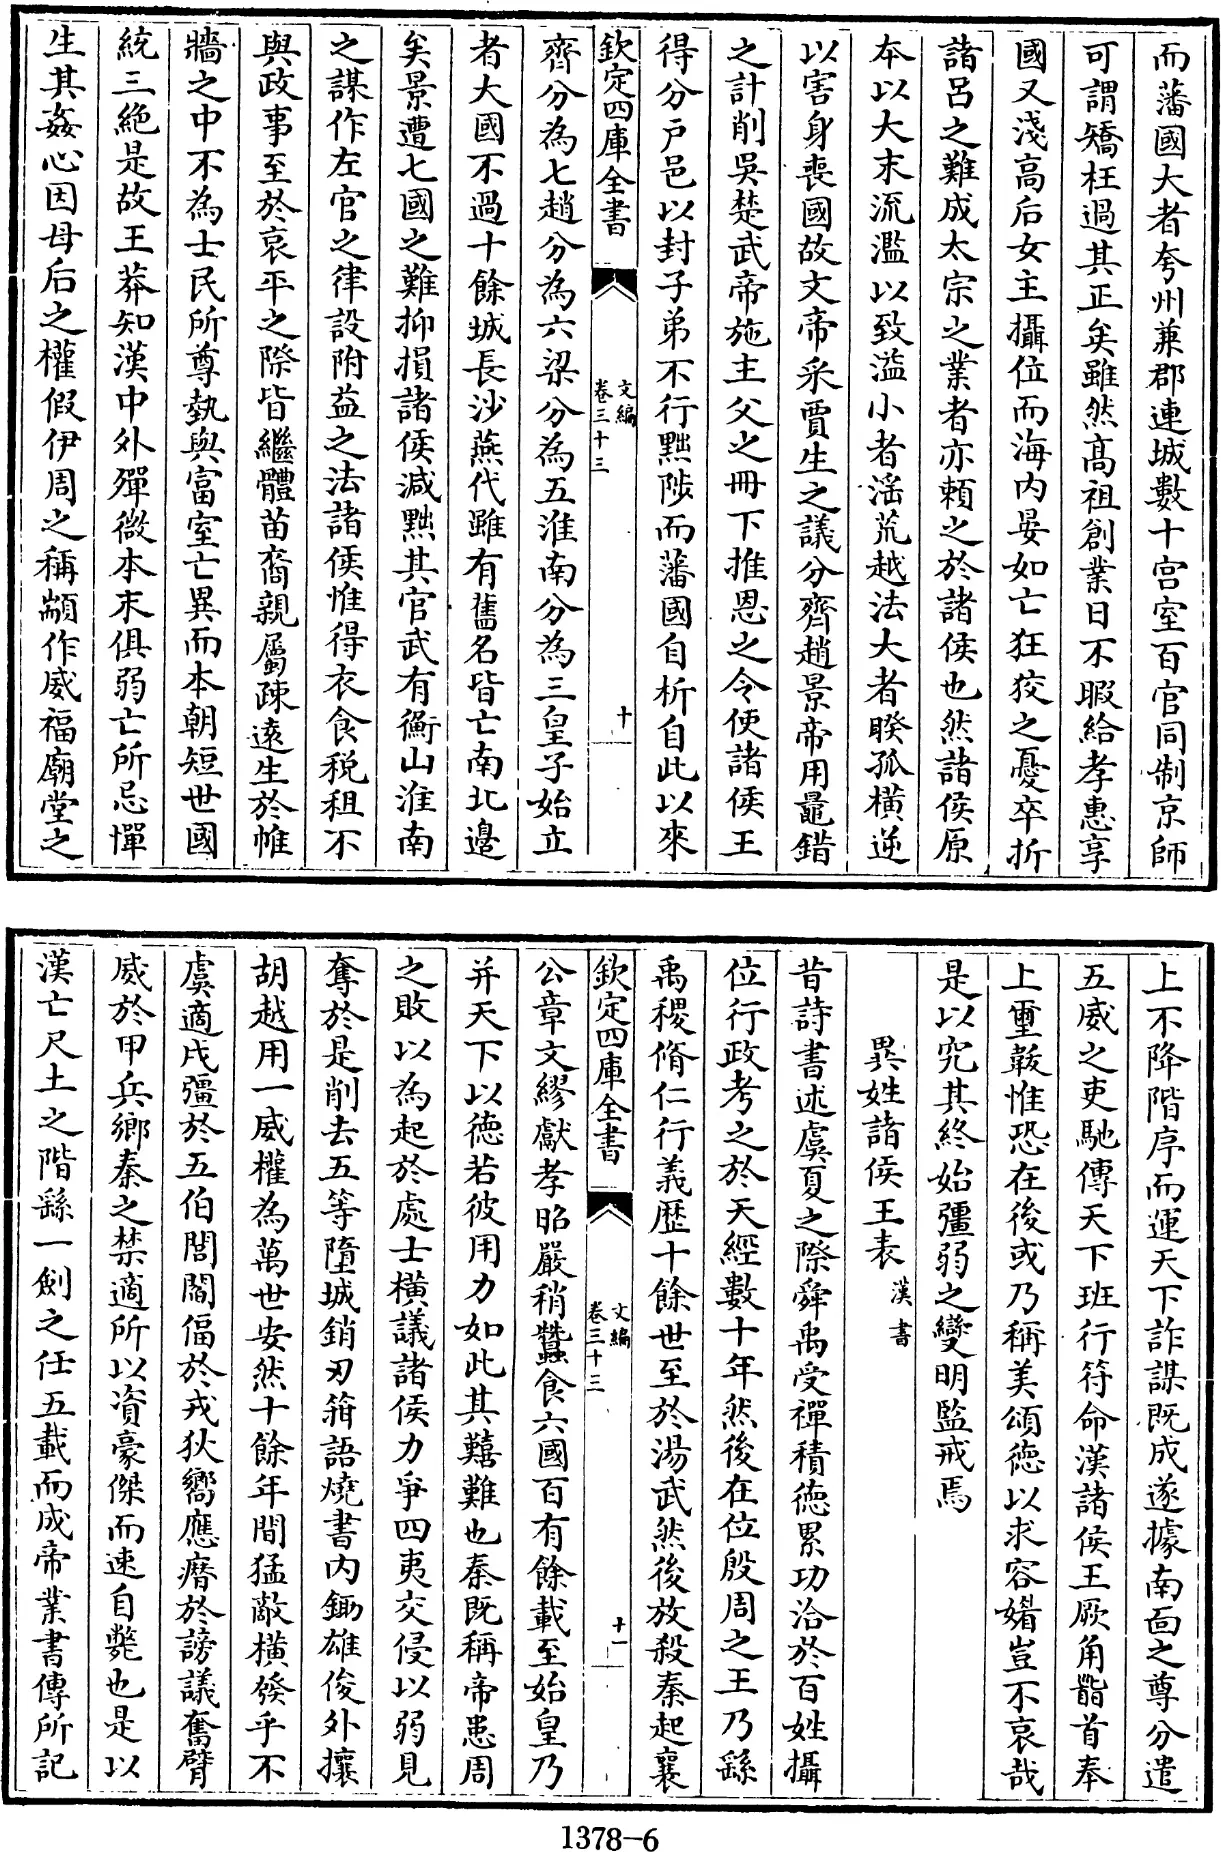 而藩國大者夸州兼郡連城數十宫室百官同制京師
可謂矯枉過其正矣雖然髙祖創業日不暇給孝惠享
國又淺高后女主攝位而海内晏如亡狂狡之憂卒折
諸吕之難成太宗之業者亦賴之於諸侯也然諸侯原
本以大末流濫以致溢小者淫荒越法大者睽孤橫逆
以害身喪國故文帝采賈生之議分齊趙景帝用鼂錯
之計削吳楚武帝施主父之冊下推恩之令使諸侯王
得分户邑以封子弟不行黜陟而藩國自析自此以來
欽定四庫全書
文編
卷三十三
十
齊分為七趙分為六梁分為五淮南分為三皇子始立
者大國不過十餘城長沙燕代雖有舊名皆亡南北邊
矣景遭七國之難抑損諸侯減黜其官武有衡山淮南
之謀作左官之律設附益之法諸侯惟得衣食税租不
與政事至於哀平之際皆繼體苗裔親屬疎逺生於帷
牆之中不為士民所尊埶與富室亡異而本朝短世國
統三絶是故王莽知漢中外殫微本末俱弱亡所忌憚
生其姦心因母后之權假伊周之稱顓作威福廟堂之
上不降階序而運天下詐謀既成遂據南面之尊分遣
五威之吏馳傳天下班行符命漢諸侯王厥角䭫首奉
上璽韍惟恐在後或乃稱美頌徳以求容媚豈不哀哉
是以究其終始彊弱之變明監戒焉
異姓諸侯王表 漢書
昔詩書述虞夏之際舜禹受禪積徳累功洽於百姓攝
位行政考之於天經數十年然後在位殷周之王乃繇
禹稷脩仁行義歴十餘世至於湯武然後放殺秦起襄
欽定四庫全書
文編
卷三十三
十一
公章文繆獻孝昭嚴稍蠶食六國百有餘載至始皇乃
并天下以徳若彼用力如此其囏難也秦既稱帝患周
之敗以為起於處士橫議諸侯力爭四夷交侵以弱見
奪於是削去五等墮城銷刃箝語燒書内鋤雄俊外攘
胡越用一威權為萬世安然十餘年間猛敵橫發乎不
虞適戍彊於五伯閭閻偪於戎狄嚮應㿊於謗議奮臂
威於甲兵鄉秦之禁適所以資豪傑而速自斃也是以
漢亡尺土之階繇一劍之任五載而成帝業書傳所記
1378-6